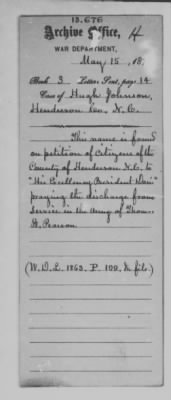 13.676
Archive Office, H
WAR DEPARTMENT,
May 15, 18
Book 3 Letters Sent, page 14
Case of Hugh Johnson,
Henderson Co. N.C.
This name is found
on petition of Citizens of the
County of Henderson N.C. to
"His Excellency President Davis"
praying the discharge from
service in the Army of Thom
Pearson
(W.D.L. 1863. P. 100. & file)